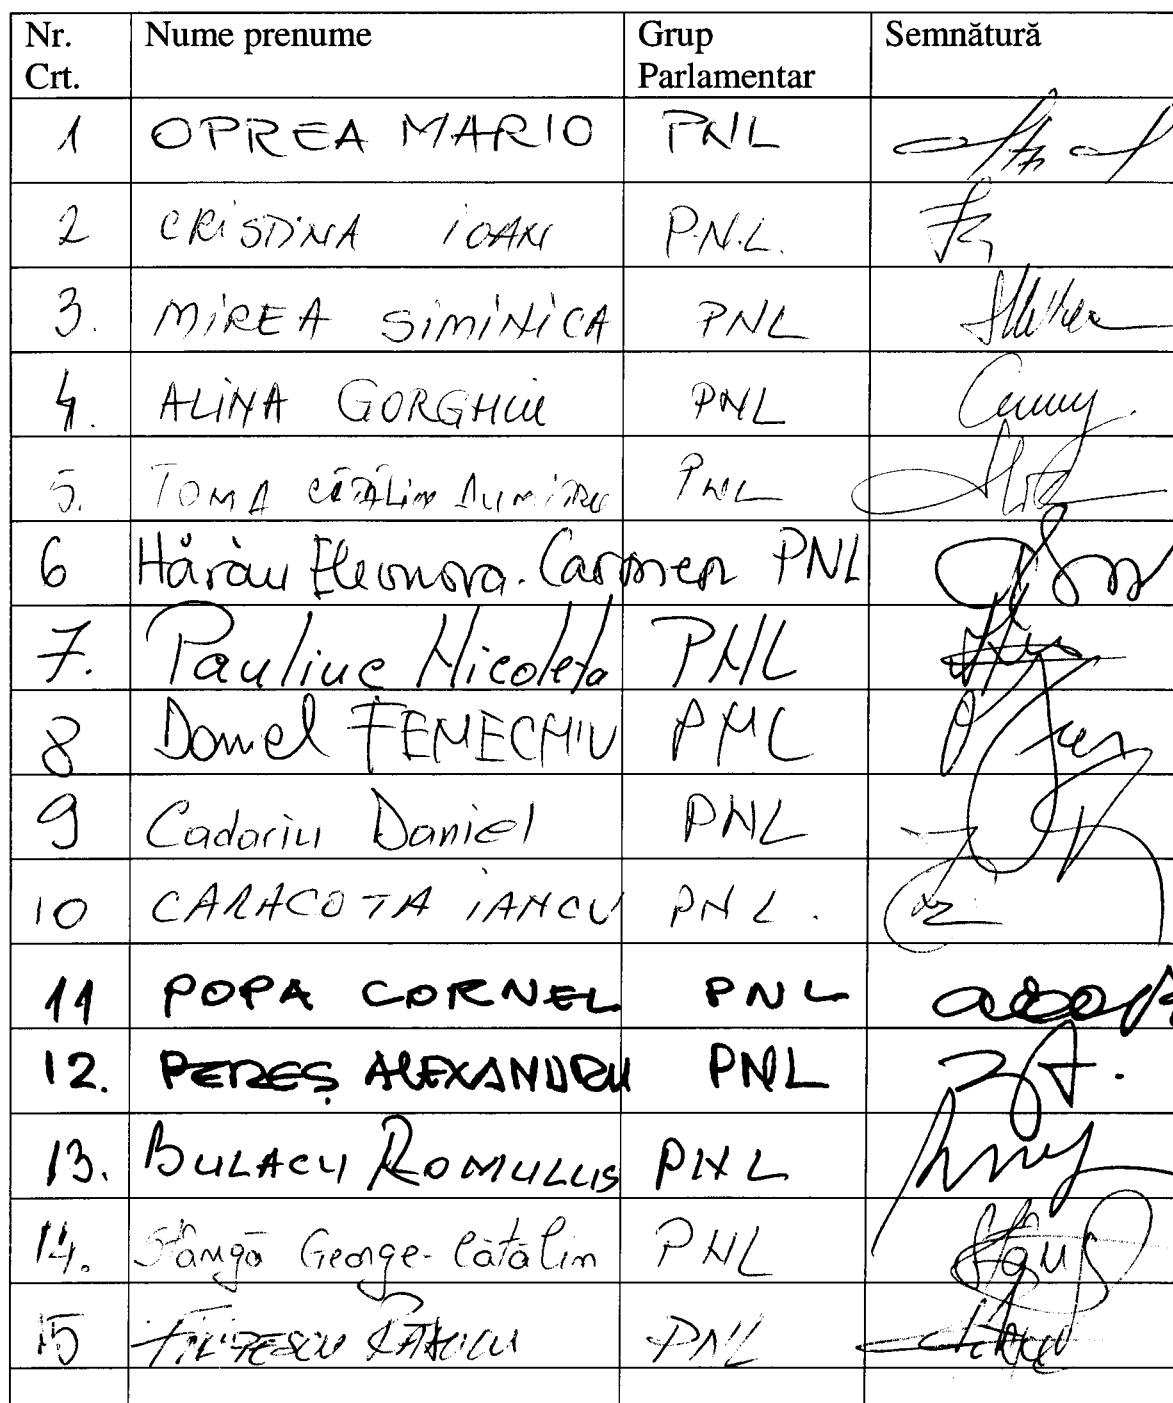 Nr. Crt. Nume prenume Grup Parlamentar Semnătură
1 OPREA MARIO PNL
2 CRISTINA IOAN P.N.L.
3. MIREA SIMINICA PNL
4. ALINA GORGHIU PNL
5. TOMA CĂTĂLIN DUMITRU PNL
6 Hărău Eleonora-Carmen PNL
7. Pauliuc Nicoleta PNL
8 Daniel FENECHIU PNL
9 Cadariu Daniel PNL
10 CARACOTA IANCU PNL.
11 POPA CORNEL PNL
12. PEREȘ ALEXANDRU PNL
13. BULACU ROMULUS PNL
14. Stângă George-Cătălin PNL
15 PNL